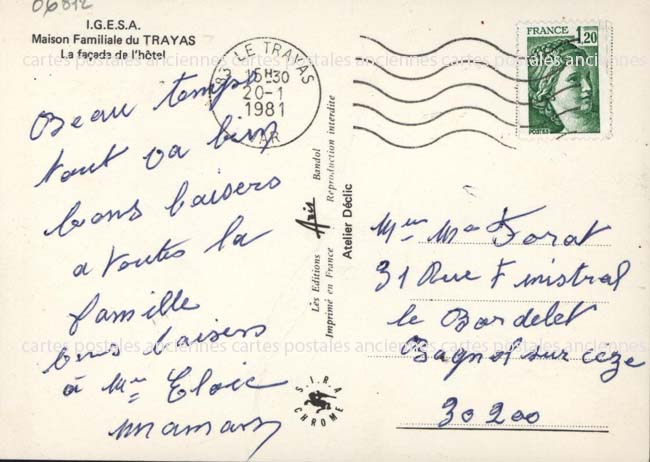 06812
I.G.E.S.A.
Maison Familiale du TRAYAS
La façade de l'hôtel
LE TRAYAS
15H30
20-1
1981
VAR
FRANCE
1,20
POSTES
cartes postales anciennes cartes postales anciennes cartes postales anciennes
Beau temps
tout va bien
bons baisers
a toutes la
famille
bons baisers
à Mme Eloie
maman
Les Editions Aris Bandol
Imprimé en France Reproduction interdite
Atelier Déclic
S.I.R.A.
CHROME
Mme Forat
31 Rue F mistral
le Bordelet
Bagnols sur ceze
30200
cartes postales anciennes cartes postales anciennes cartes postales anciennes